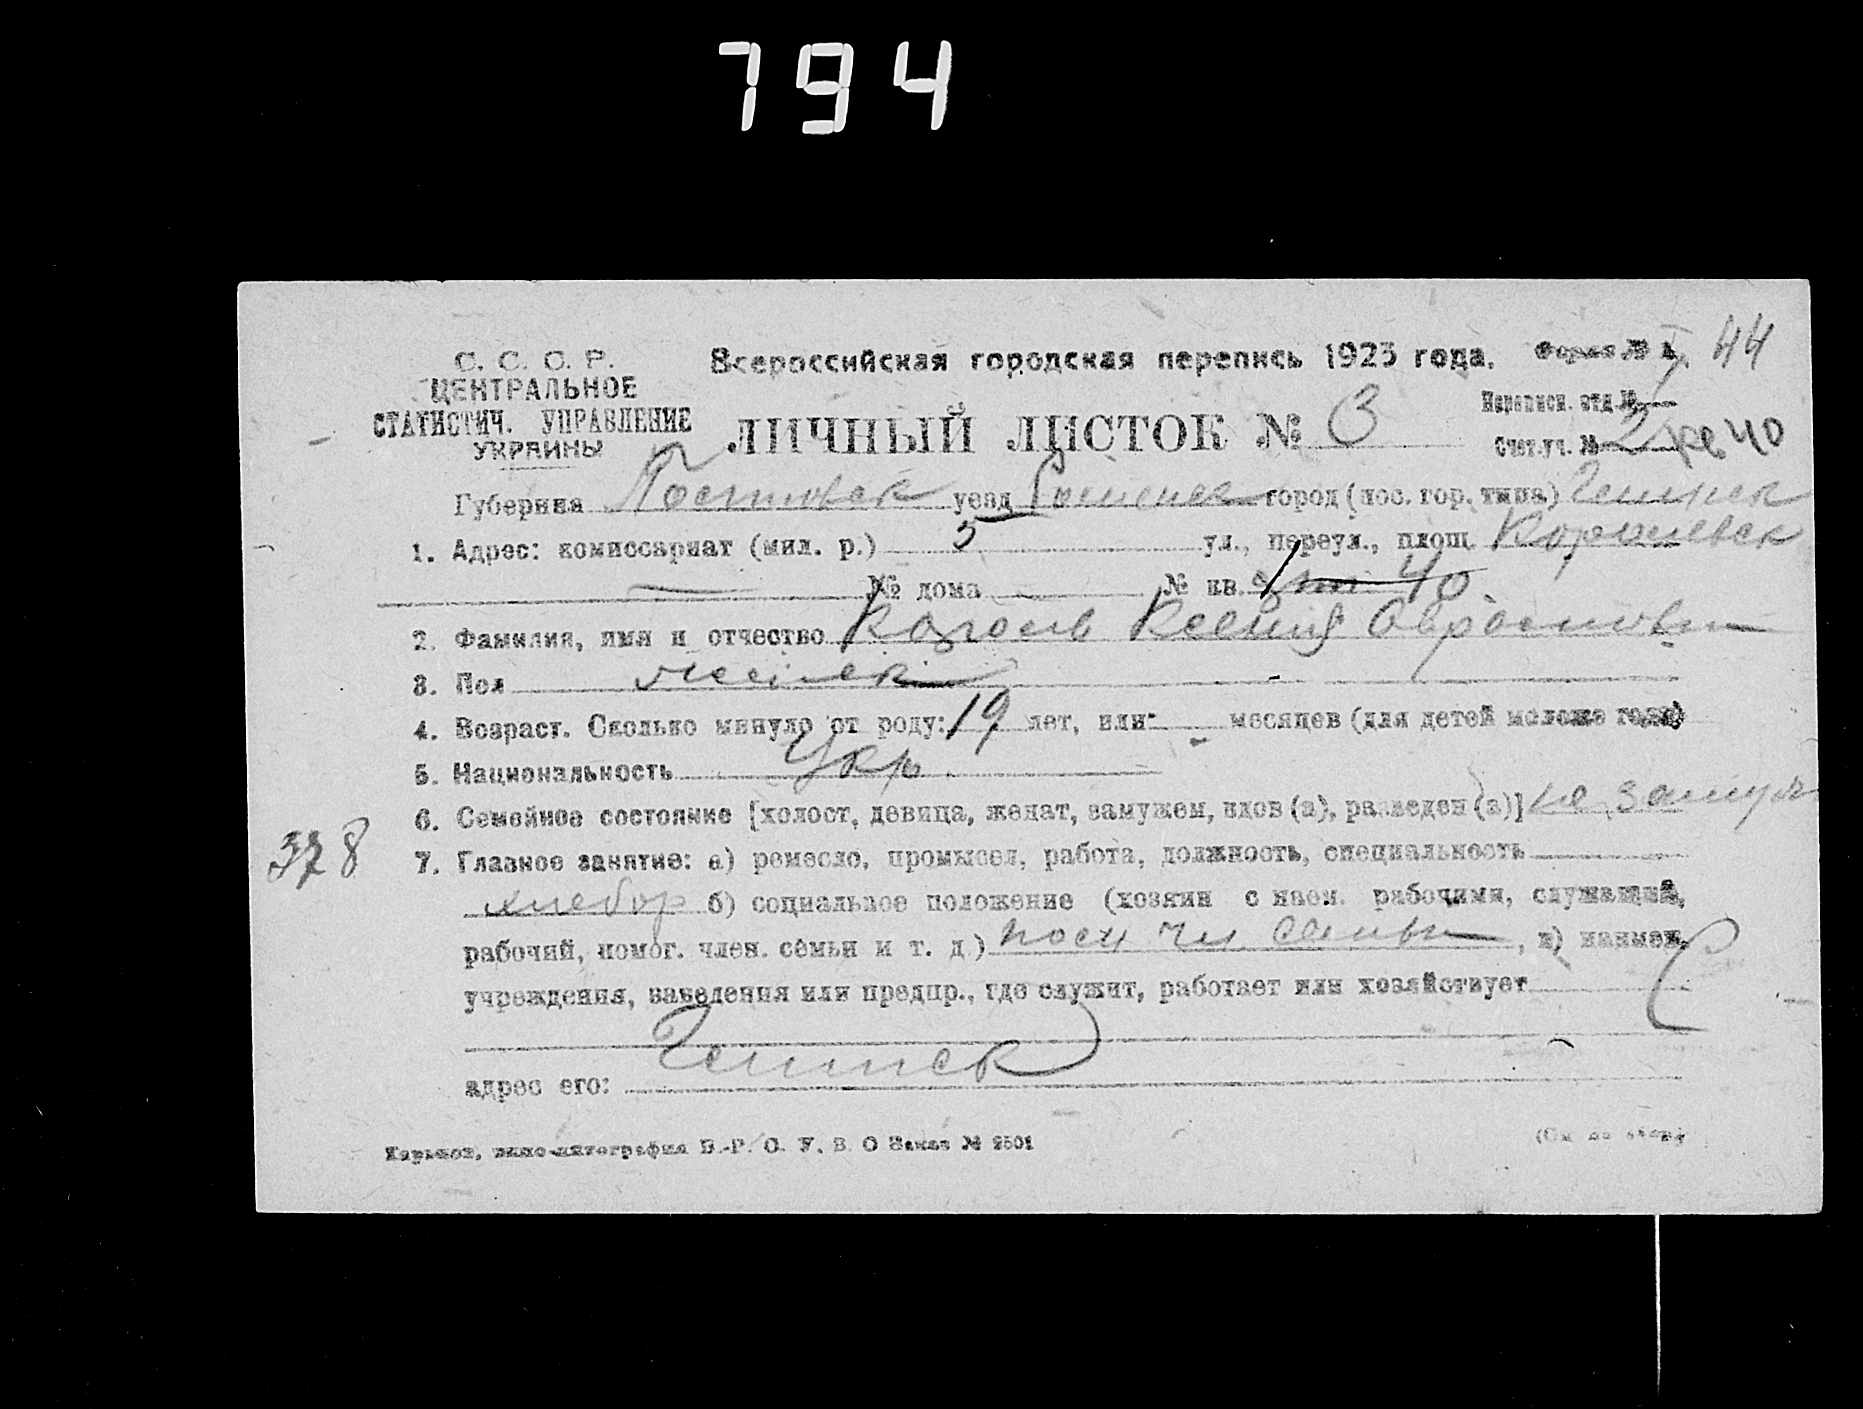 794
С. С. С. Р.
ЦЕНТРАЛЬНОЕ
СТАТИСТИЧ. УПРАВЛЕНИЕ
УКРАИНЫ
Всероссийская городская перепись 1923 года. Форма № 44
ЛИЧНЫЙ ЛИСТОК № 3
Переписн. отд. №
Счет. уч. № 2 40
Губерния уезд город (пос. гор. типа)
1. Адрес: комиссариат (мил. р.) 5 ул., переул., площ.
№ дома № кв. 40
2. Фамилия, имя и отчество Ксения
3. Пол женск
4. Возраст. Сколько минуло от роду: 19 лет, или - месяцев (для детей моложе года)
5. Национальность Укр
6. Семейное состояние [холост, девица, женат, замужем, вдов (а), разведен (а)] не замуж
378
7. Главное занятие: а) ремесло, промысел, работа, должность, специальность
хлебор б) социальное положение (хозяин с наем. рабочими, служащий,
рабочий, помог. член. семьи и т. д.) чл семьи, в) наимен.
учреждения, заведения или предпр., где служит, работает или хозяйствует
адрес его:
Харьков, Заказ № 2501